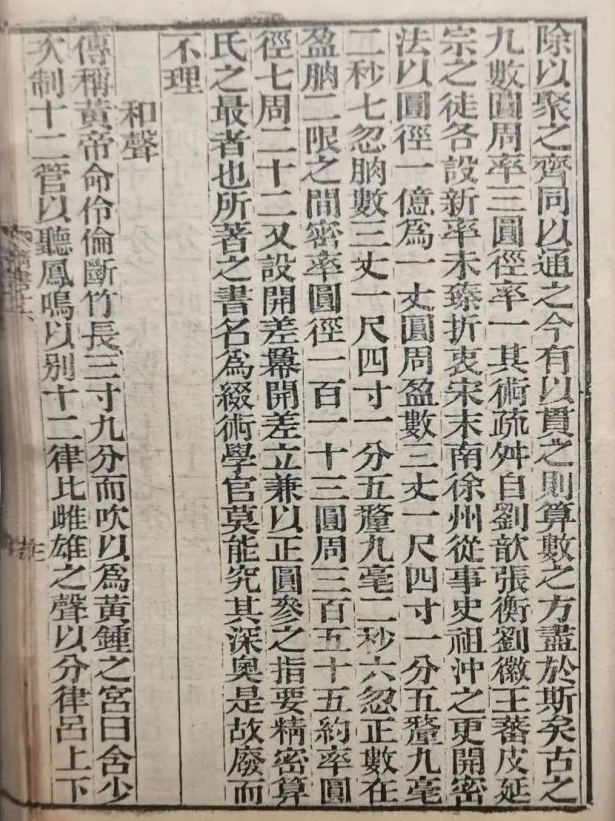 除以聚之齊同以通之今有以貫之則算數之方盡於斯矣古之
九數圓周率三圓徑率一其術疏舛自劉歆張衡劉徽王蕃皮延
宗之徒各設新率未臻折衷宋末南徐州從事史祖沖之更開密
法以圓徑一億爲一丈圓周盈數三丈一尺四寸一分五釐九毫
二秒七忽朒數三丈一尺四寸一分五釐九毫二秒六忽正數在
盈朒二限之間密率圓徑一百一十三圓周三百五十五約率圓
徑七周二十二又設開差羃開差立兼以正圓參之指要精密算
氏之最者也所著之書名爲綴術學官莫能究其深奧是故廢而
不理
和聲
傳稱黃帝命伶倫斷竹長三寸九分而吹以爲黃鍾之宮曰含少
次制十二管以聽鳳鳴以別十二律比雌雄之聲以分律呂上下